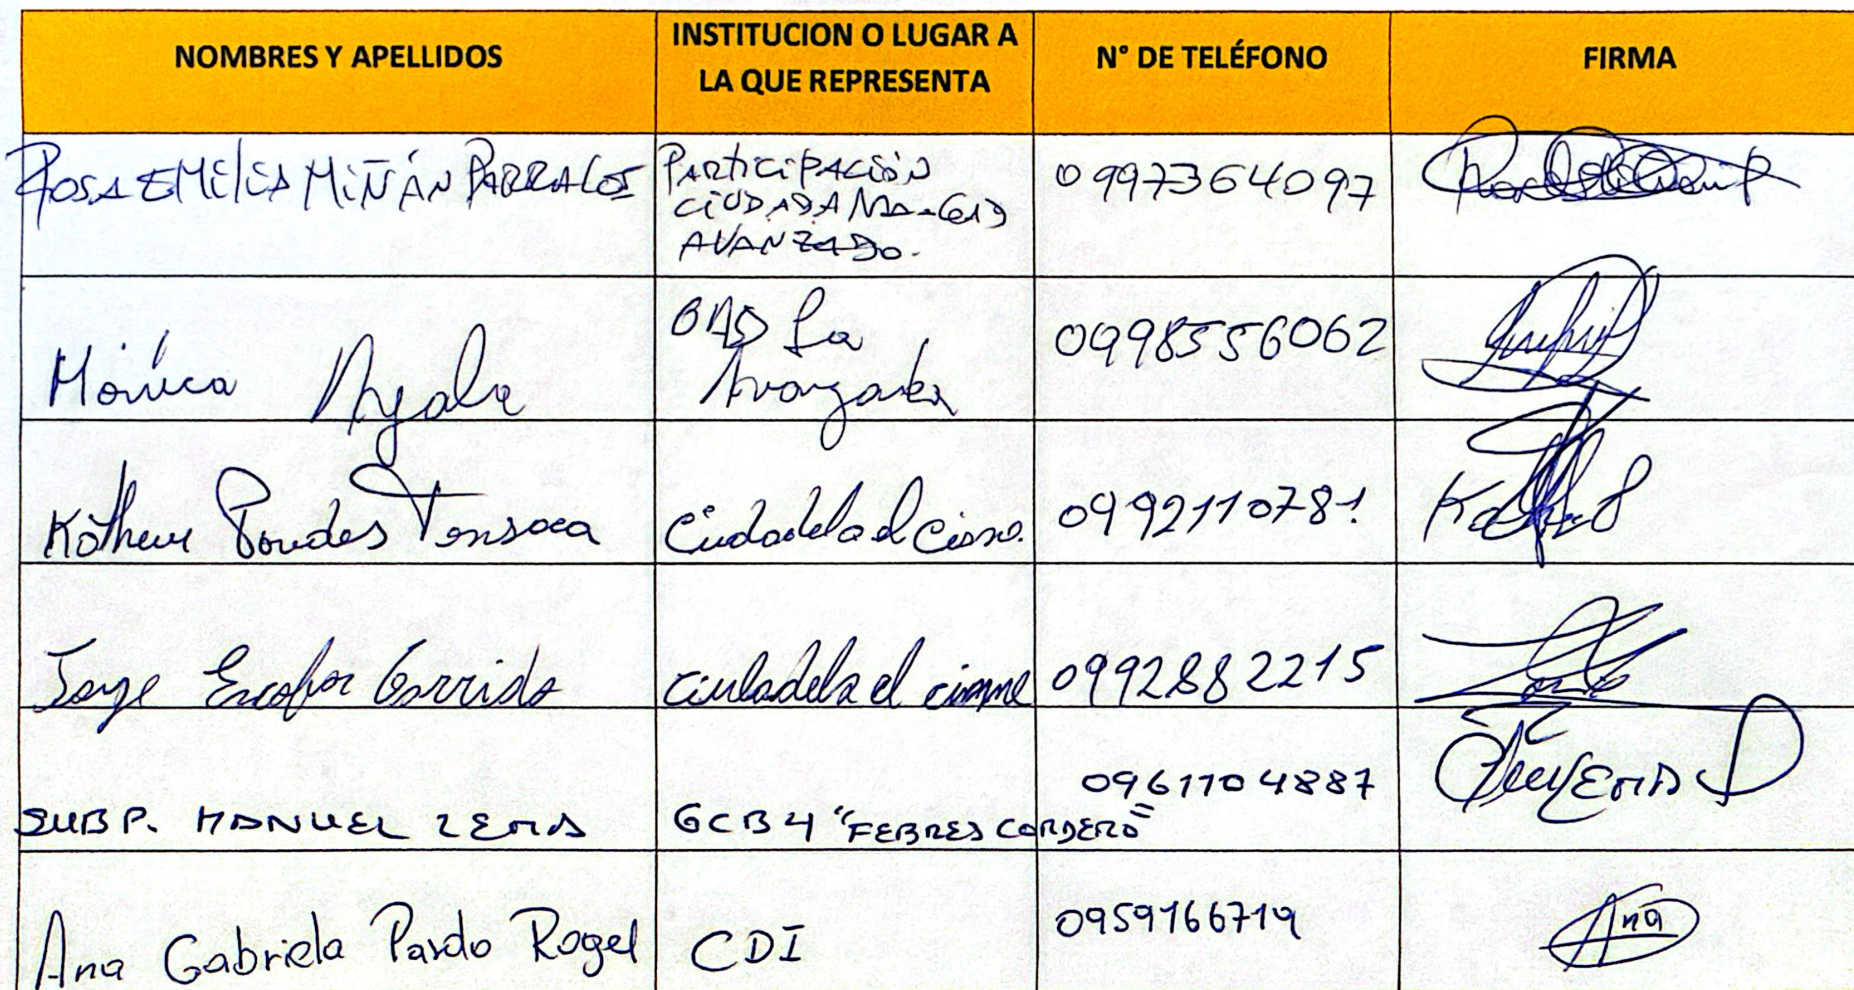 NOMBRES Y APELLIDOS
INSTITUCION O LUGAR A
LA QUE REPRESENTA
N° DE TELÉFONO
FIRMA
ROSA EMILIA MIÑÁN PARRALES
PARTICIPACIÓN
CIUDADANA-GAD
AVANZADO.
0997364097
Mónica Ayala
GAD La
Avanzada
0998556062
Ciudadela el Cisne.
0992110781
Jorge Escobar Garrido
Ciudadela el cisne
0992882215
SUBP. MANUEL LEMA
GCB 4 "FEBRES CORDERO"
0961104887
LEMA D
Ana Gabriela Pardo Rogel
CDI
0959166719
Ana